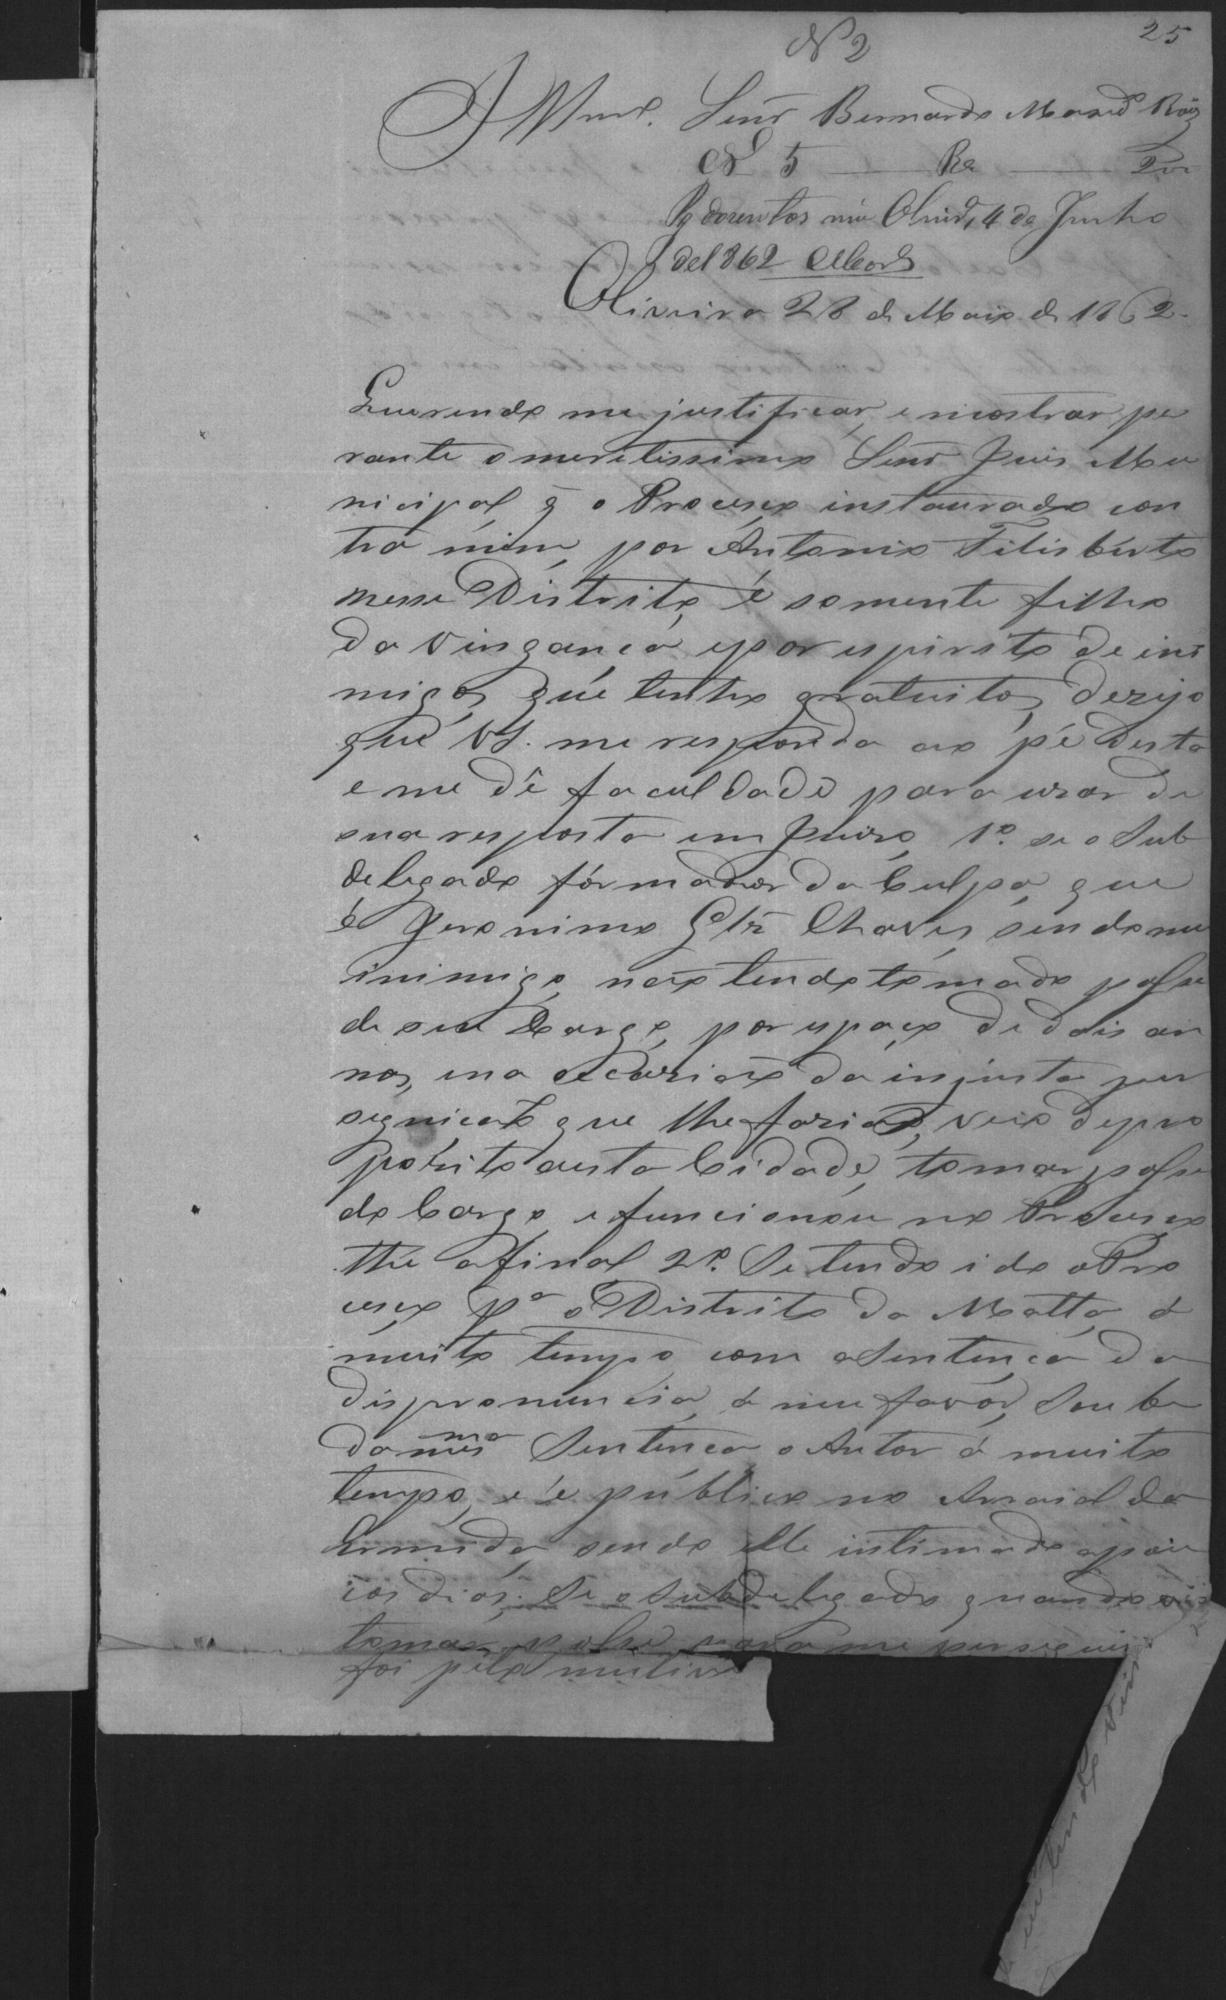 25
N 2
Illmo. Senr. Bernardo
N 5 Rs
4 de Junho
de 1862
Oliveira 28 de Maio de 1862.
Querendo me justificar, e mostrar pe
rante o meretissimo Senr. Juis Mu
nicipal q̃ o Processo instaurado con
tra mim, por Antonio Felisberto
nesse Distrito, é somente filho
da vingança e por espirito de ini
migos que tenho gratuitos, dezejo
que VS. me responda ao pé desta
e me dê faculdade para usar de
sua resposta em Juizo, 1º. se o Sub
delegado formador da Culpa, que
é Jeronimo Glz̃ Chaves, sendo meu
inimigo, não tendo tomado posse
de seu Cargo, por espaço de dois an
nos, ena occasião da injusta per
seguicão que me fazião, veio de pro
pozito aesta Cidade, tomar posse
do Cargo, e funcionou no Processo
thé a final 2º. Se tendo ido o Pro
cesso pª o Distrito da Matta, á
muito tempo, com a Sentença da
dispronuncia, á meu favor, Soube
da mesma Sentença o Autor á muito
tempo, e é público no Arraial da
Ermida, sendo elle intimado a pou
cos dias. Se o Subdelegado quando veio
tomar posse para me perseguir
foi pelo